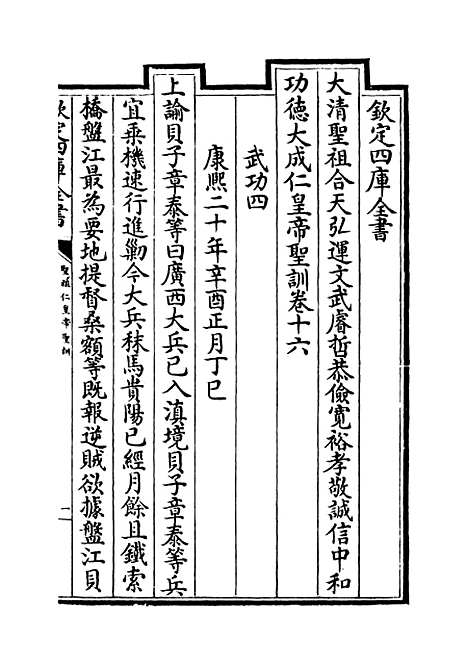 欽定四庫全書
大清聖祖合天弘運文武睿哲恭儉寬裕孝敬誠信中和
功德大成仁皇帝聖訓卷十六
武功四
康熙二十年辛酉正月丁巳
上諭貝子章泰等曰廣西大兵已入滇境貝子章泰等兵
宜乘機速行進勦今大兵秣馬貴陽已經月餘且鐵索
橋盤江最為要地提督桑額等既報逆賊欲據盤江貝
欽定四庫全書
聖祖仁皇帝聖訓
一